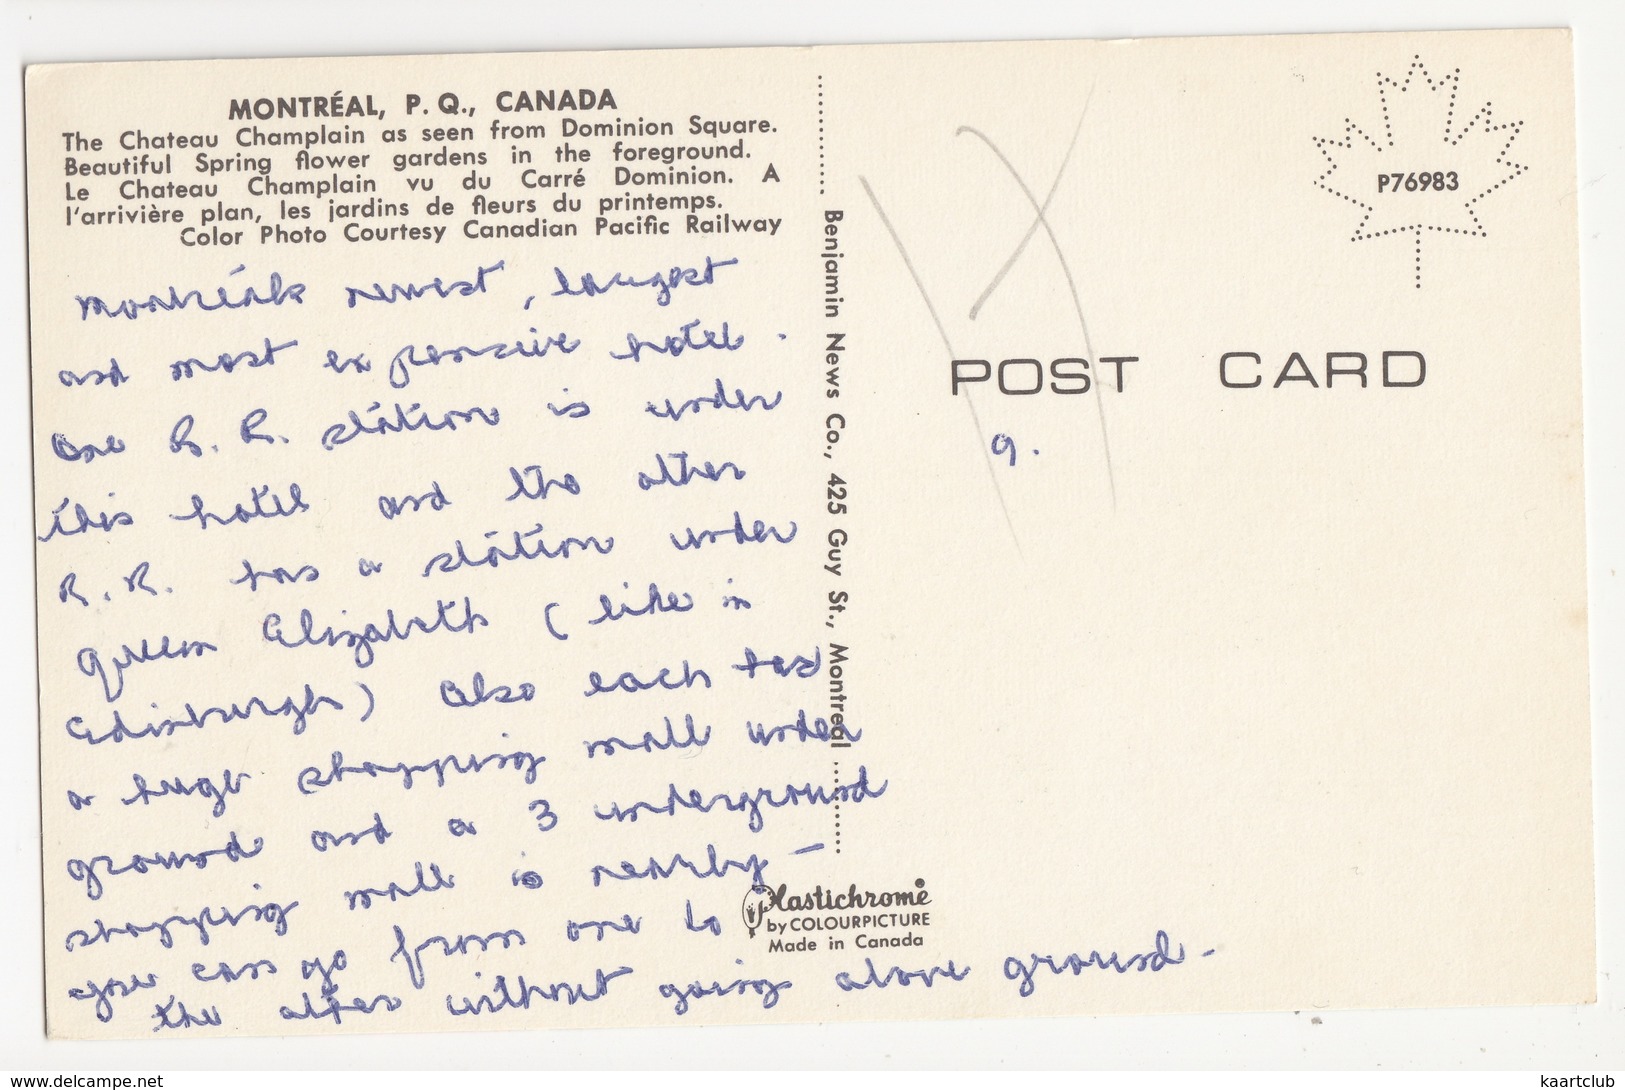 MONTRÉAL, P. Q., CANADA
The Chateau Champlain as seen from Dominion Square.
Beautiful Spring flower gardens in the foreground.
Le Chateau Champlain vu du Carré Dominion. A
l'arrivière plan, les jardins de fleurs du printemps.
Color Photo Courtesy Canadian Pacific Railway
Montréals newest, largest
and most expensive hotel.
One R.R. station is under
this hotel and the other
R.R. has a station under
Queen Elizabeth (like in
Edinburgh) Also each has
a huge shopping mall under
ground and a 3 underground
shopping mall is nearby –
you can go from one to
the other without going above ground -
Benjamin News Co., 425 Guy St., Montreal
Plastichrome
by COLOURPICTURE
Made in Canada
P76983
POST CARD
9.
kaartclub